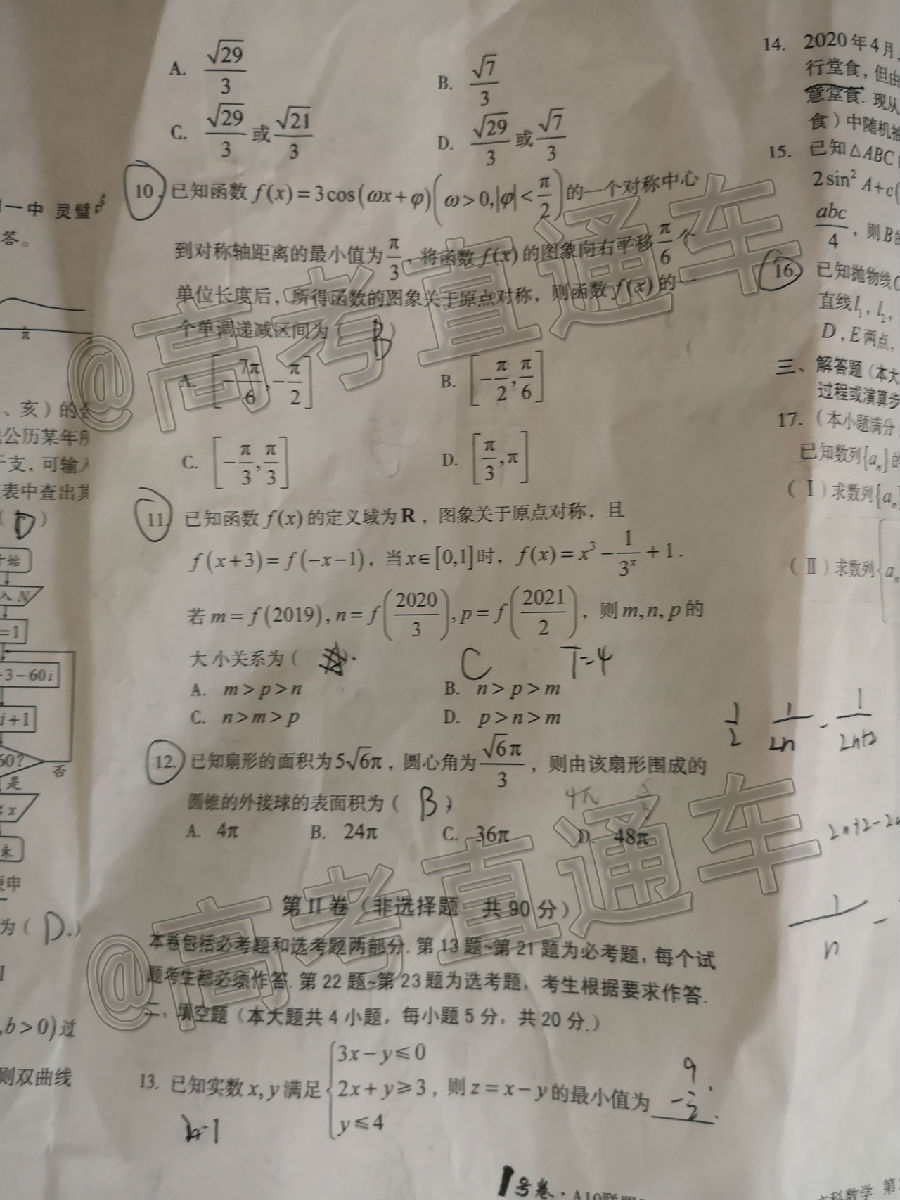 A. √29/3
B. √7/3
C. √29/3 或 √21/3
D. √29/3 或 √7/3
10. 已知函数 f(x)=3cos(ωx+φ)(ω>0,|φ|<π/2)的一个对称中心
到对称轴距离的最小值为π/3，将函数 f(x)的图象向右平移π/6个
单位长度后，所得函数的图象关于原点对称，则函数 f(x)的一
个单调递减区间为（ B ）
A. [-7π/6,-π/2]
B. [-π/2,π/6]
C. [-π/3,π/3]
D. [π/3,π]
11. 已知函数 f(x)的定义域为R，图象关于原点对称，且
f(x+3)=f(-x-1)，当x∈[0,1]时，f(x)=x³-1/3ˣ+1.
若 m=f(2019),n=f(2020/3),p=f(2021/2)，则 m,n,p的
大小关系为（
C T=4
A. m>p>n
B. n>p>m
C. n>m>p
D. p>n>m
12. 已知扇形的面积为5√6π，圆心角为√6π/3，则由该扇形围成的
圆锥的外接球的表面积为（ B ）
4π
A. 4π B. 24π C. 36π D. 48π
第II卷（非选择题 共90分）
本卷包括必考题和选考题两部分. 第13题~第21题为必考题，每个试
题考生都必须作答. 第22题~第23题为选考题，考生根据要求作答.
二、填空题（本大题共4小题，每小题5分，共20分.）
13. 已知实数x,y满足{3x-y≤0
2x+y≥3，则z=x-y的最小值为
y≤4
1号卷·A10联盟
科数学 第
14. 2020年4月
行堂食，但由
意堂食. 现从
食）中随机抽
15. 已知△ABC
2sin²A+c(
abc/4，则B的
16. 已知抛物线C
直线l₁，l₂，
D,E两点，
三、解答题（本大
过程或演算步
17.（本小题满分
已知数列{aₙ}的
（Ⅰ）求数列{aₙ
（Ⅱ）求数列{
1/2 1/2n - 1/2n+2
2n+2-2n
1/n -
一中 灵璧
答。
、亥）的
公历某年所
干支，可输入
表中查出其
（ D ）
=1
-3-60i
i+1
60?
否
是
末
庚申
为（ D.）
,b>0)过
则双曲线